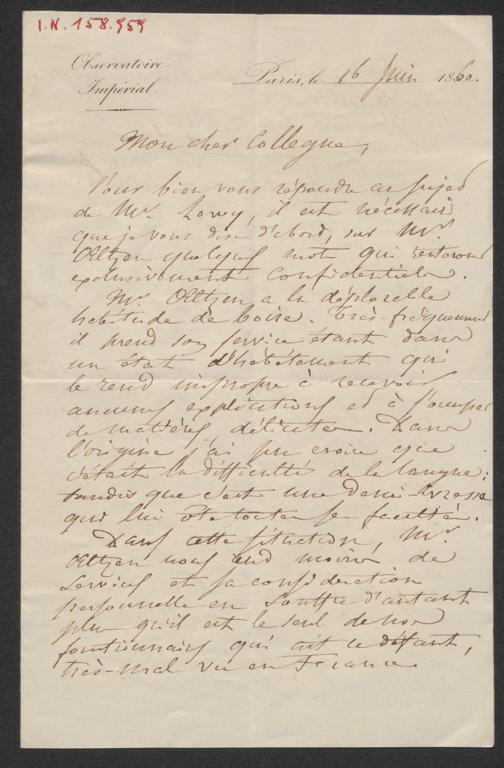 I.N. 158.959
Observatoire
Impérial.
Paris, le 16 Juin 1860.
Mon cher Collegue,
Pour bien vous répondre au sujet
de Mr. Lowy, il est nécessaire
que je vous dise d'abord, sur Mr.
Oeltzen quelques mots qui resteront
exclusivement confidentiels.
Mr. Oeltzen a la déplorable
habitude de boire. Très-fréquemment
il prend son service étant dans
un état d'hébétement qui
le rend impropre à recevoir
aucunes explications et à s'occuper
de matières délicates. Dans
l'origine j'ai pu croire que
c'était la difficulté de la langue;
tandis que c'est une demi-ivresse
qui lui ôte toutes ses facultés.
Dans cette situation, Mr.
Oeltzen nous rend moins de
services et sa considération
personnelle en souffre d'autant
plus qu'il est le seul de nos
fonctionnaires qui ait ce défaut,
très-mal vu en France.